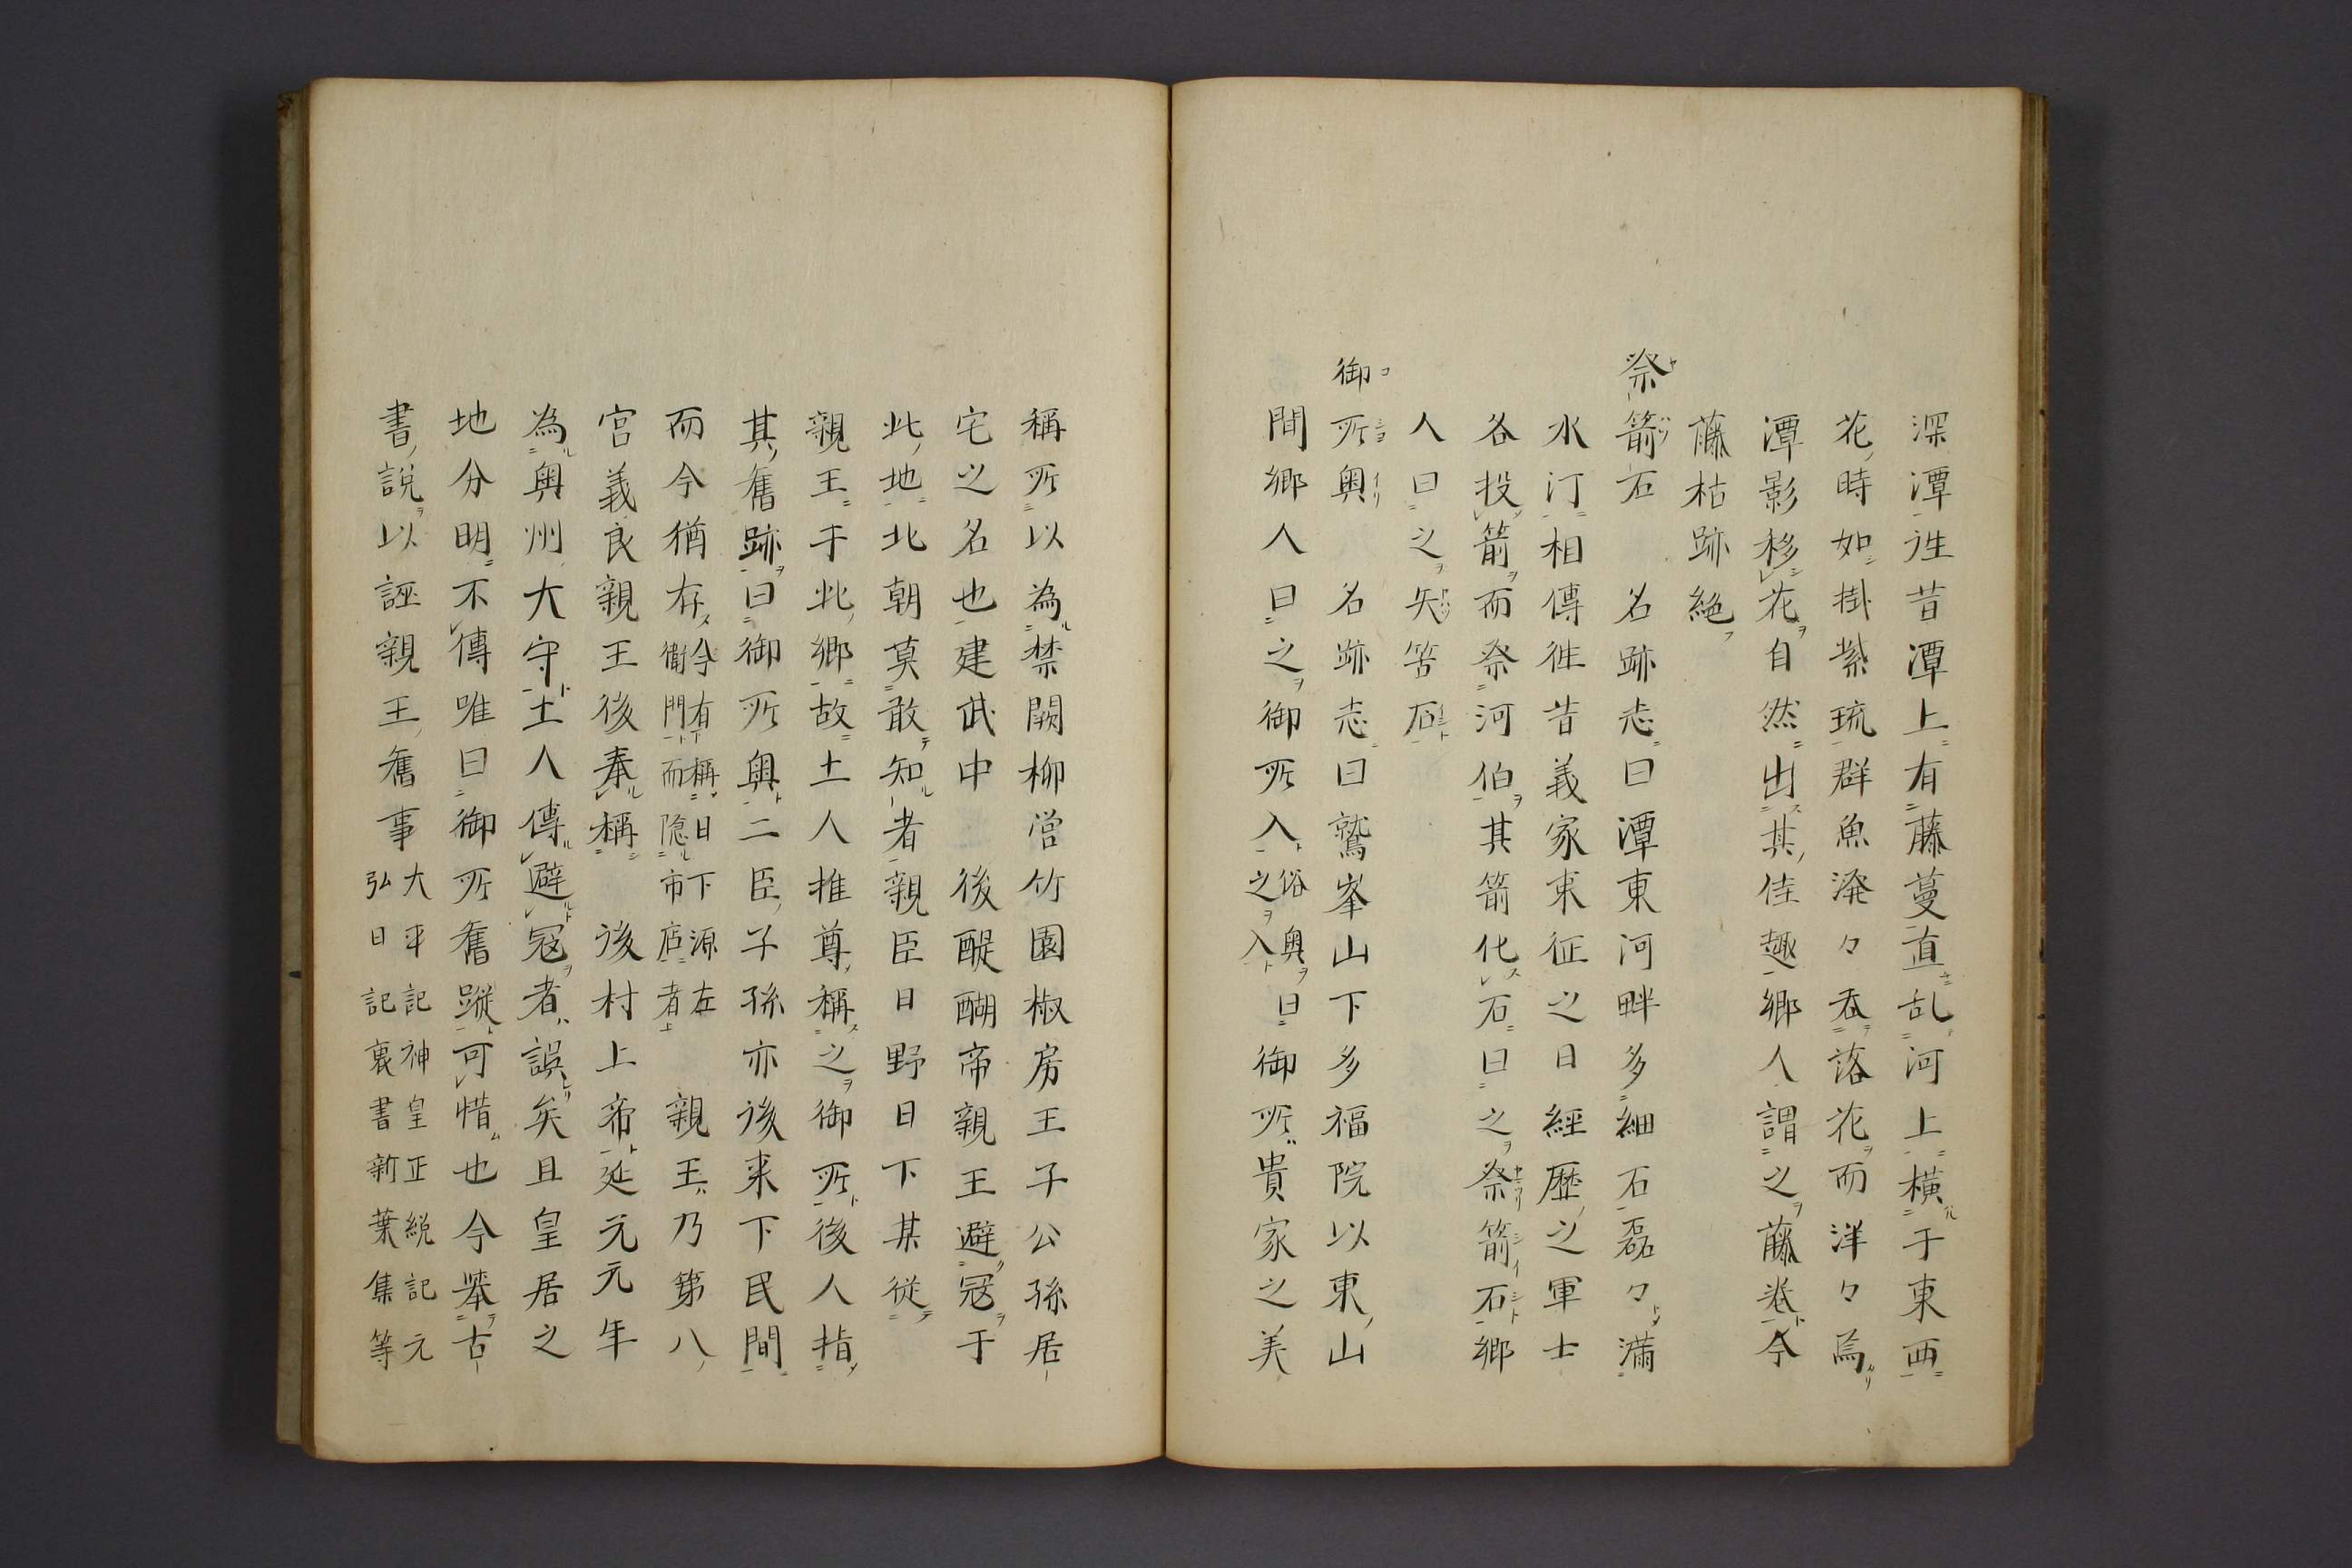 深潭往昔潭上有藤蔓直乱河上横于東西
花時如掛紫琉群魚溌々呑落花而洋々焉
潭影移花自然出其佳趣郷人謂之藤巻今
藤枯跡絶
祭箭石 名跡志曰潭東河畔多細石磊々満
水汀相傳徃昔義家東征之日經歴之軍士
各投箭而祭河伯其箭化石曰之祭箭石郷
人曰之矢筈石
御所奥 名跡志曰鷲峯山下多福院以東山
間郷人曰之御所入俗奥曰之入御所貴家之美
稱所以為禁闕柳営竹園椒房王子公孫居
宅之名也建武中 後醍醐帝親王避冦于
此地北朝莫敢知者親臣日野日下某従
親王于此郷故土人推尊稱之御所後人指
其舊跡曰御所奥二臣子孫亦後来下民間
而今猶存今有稱日下源左衛門而隠市店者 親王乃第八
宮義良親王後奉稱 後村上帝延元元年
為奥州大守土人傳避冦者誤矣且皇居之
地分明不傳唯曰御所舊蹤可惜也今挙古
書説以誣親王舊事大平記神皇正統記元弘日記裏書新葉集等